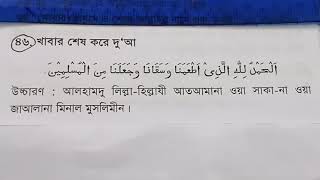 ৪৬. খাবার শেষ করে দু'আ
اَلْحَمْدُ لِلّٰهِ الَّذِىْ اَطْعَمَنَا وَسَقَانَا وَجَعَلَنَا مِنَ الْمُسْلِمِيْنَ
উচ্চারণ : আলহামদু লিল্লা-হিল্লাযী আতআমানা ওয়া সাকা-না ওয়া
জাআলানা মিনাল মুসলিমীন।